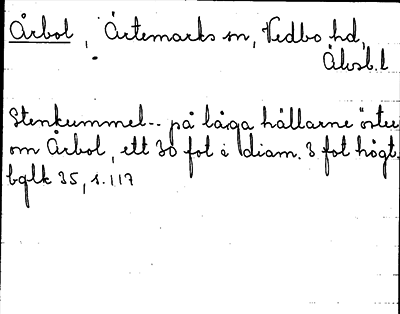 Årbol, Ärtemarks sn, Vedbo hd,
Älvsb. l
Stenkummel-- på låga hällarne öster
om Årbol, ett 30 fot i diam. 3 fot högt.
bglk 35, s. 117